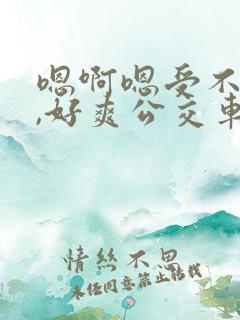 嗯啊嗯受不
,好爽公交车
情丝不思
未经同意禁止转载